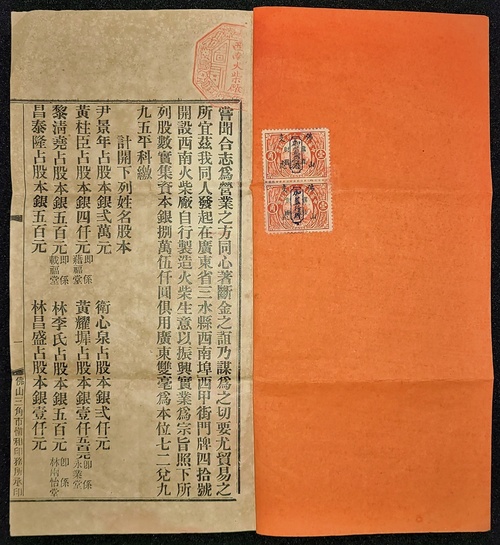 西南火柴廠
嘗聞合志爲營業之方同心著斷金之誼乃謀爲之切要尤貿易之
所宜茲我同人發起在廣東省三水縣西南埠西甲街門牌四拾號
開設西南火柴廠自行製造火柴生意以振興實業爲宗旨照下所
列股數實集資本銀捌萬伍仟圓俱用廣東雙毫爲本位七二兌九
九五平科繳
計開下列姓名股本
尹景年占股本銀弍萬元 衛心泉占股本銀弍仟元
黃柱臣占股本銀四仟元 即係福堂 黃耀墀占股本銀壹仟五元 即係永業堂
黎清堯占股本銀五百元 即係載福堂 林李氏占股本銀五百元 即係林怡堂
昌泰隆占股本銀五百元 林昌盛占股本銀壹仟元
佛山三角市偉和印務局承印